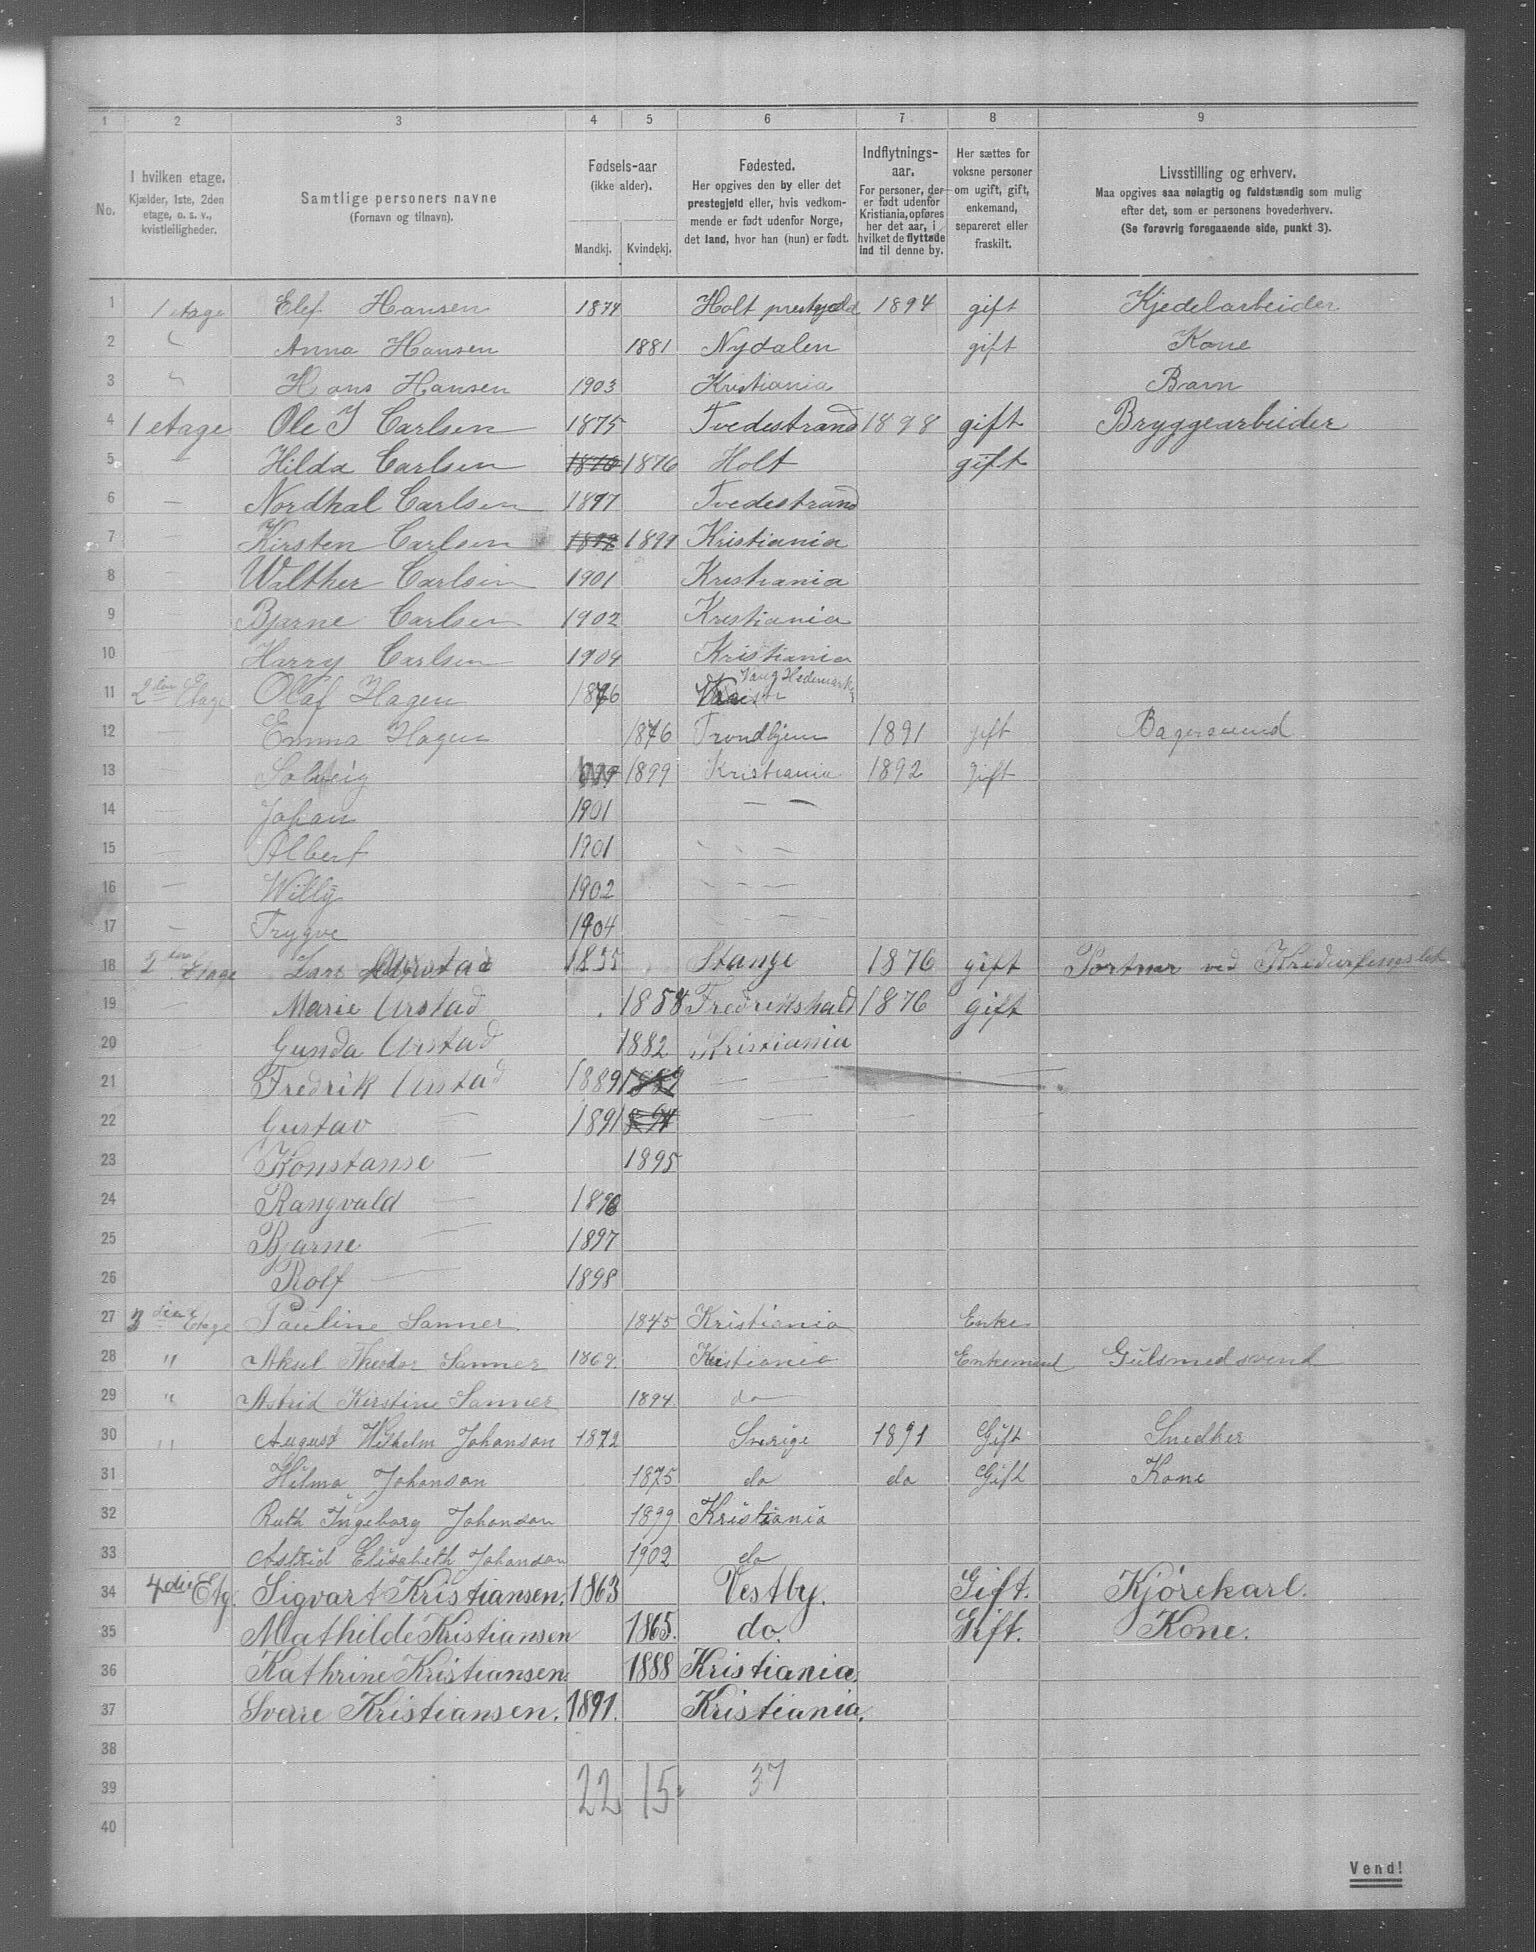 1 2 3 4 5 6 7 8 9
No.
I hvilken etage.
Kjælder, 1ste, 2den
etage, o. s. v.,
kvistleiligheder.
Samtlige personers navne
(Fornavn og tilnavn).
Fødsels-aar
(ikke alder).
Mandkj. Kvindekj.
Fødested.
Her opgives den by eller det
prestegjeld eller, hvis vedkom-
mende er født udenfor Norge,
det land, hvor han (hun) er født.
Indflytnings-
aar.
For personer, der
er født udenfor
Kristiania, opføres
her det aar, i
hvilket de flyttede
ind til denne by.
Her sættes for
voksne personer
om ugift, gift,
enkemand,
separeret eller
fraskilt.
Livsstilling og erhverv.
Maa opgives saa nøiagtig og fuldstændig som mulig
efter det, som er personens hovederhverv.
(Se forøvrig foregaaende side, punkt 3).
1 1 etage Elef Hansen 1874 Holt prestgjeld 1894 gift Kjedelarbeider
2 " Anna Hansen 1881 Nydalen gift Kone
3 " Hans Hansen 1903 Kristiania Barn
4 1 etage Ole J Carlsen 1875 Tvedestrand 1898 gift Bryggearbeider
5 — Hilda Carlsen 1876 1876 Holt gift
6 — Nordhal Carlsen 1897 Tvedestrand
7 — Kirsten Carlsen 1899 1899 Kristiania
8 — Walther Carlsen 1901 Kristiania
9 — Bjarne Carlsen 1902 Kristiania
10 — Harry Carlsen 1904 Kristiania
11 2den Etage Olaf Hagen 1876 Vang Hedemark
12 — Emma Hagen 1876 Trondhjem 1891 gift Bagersvend
13 — Solveig 1899 1899 Kristiania 1892 gift
14 — Johan 1901 — —
15 — Albert 1901 — — —
16 — Willy 1902 — — —
17 — Trygve 1904 — — —
18 2den Etage Lars Urstad 1855 Stange 1876 gift Portner ved
19 — Marie Urstad 1858 Fredrikshald 1876 gift
20 — Gunda Urstad 1882 Kristiania
21 Fredrik Urstad 1889 1889 — —
22 Gustav — 1891 1891 — —
23 Konstanse — 1895
24 Rangvald — 1896
25 Bjarne — 1897
26 Rolf — 1898
27 3die Etage Pauline Sanner. 1845 Kristiania Enke
28 " Aksel Theodor Sanner 1869. Kristiania Enkemand Gulsmedsvend
29 " Astrid Kirstine Sanner 1894. do
30 " August Wilhelm Johanson 1872 Sverige 1891 Gift Snedker
31 Hilma Johanson 1875 do do Gift Kone
32 Ruth Ingeborg Johanson 1899 Kristiania
33 Astrid Elisabeth Johanson 1902 do
34 4die Etg. Sigvart Kristiansen. 1863 Vestby. Gift. Kjørekarl.
35 Mathilde Kristiansen 1865. do. Gift. Kone.
36 Kathrine Kristiansen. 1888 Kristiania.
37 Sverre Kristiansen. 1891. Kristiania.
38
39 22 15 37
40
Vend!